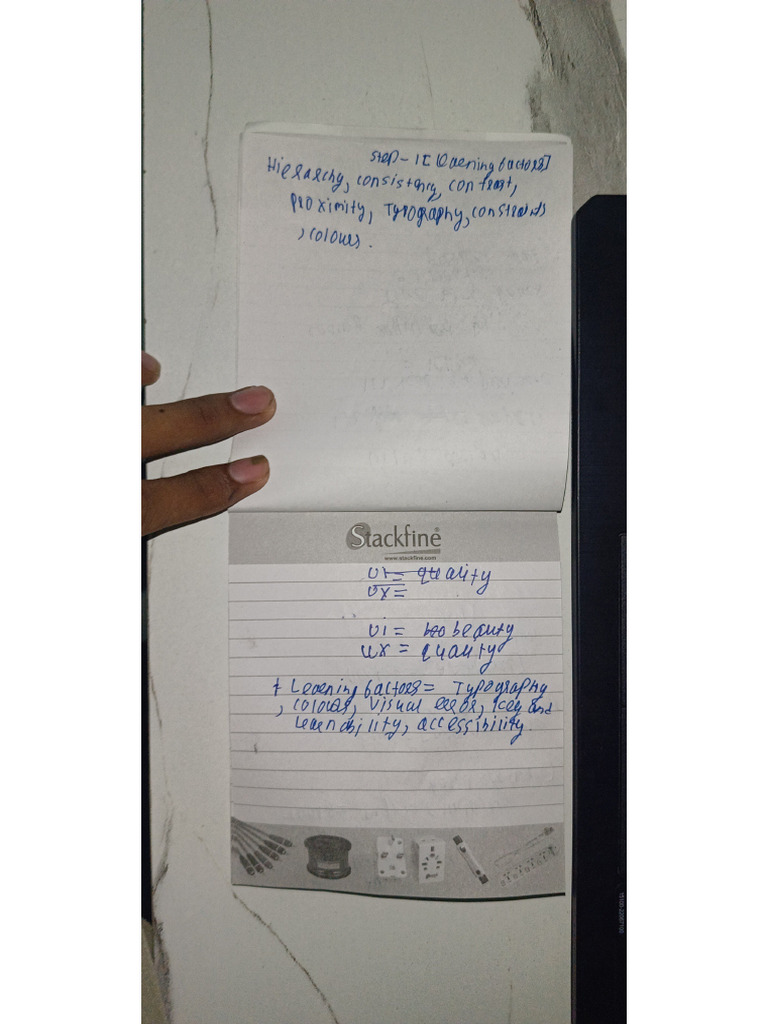 Step - 1 [Learning factors]
Hierarchy, consistency, contrast,
proximity, Typography, constraints
, colours.
Stackfine®
www.stackfine.com
UI = quality
UX =
UI = beauty
UX = quality
Learning factors = Typography
, colours, visual error, and
learnability, accessibility.